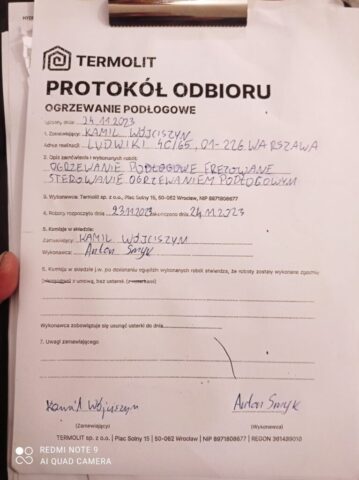 TERMOLIT
PROTOKÓŁ ODBIORU
OGRZEWANIE PODŁOGOWE
Spisany dnia 24.11.2023
1. Zamawiający: KAMIL WÓJCISZYN
Adres realizacji: LUDWIKI 4C/65, 01-226 WARSZAWA
2. Opis zamówienia i wykonanych robót:
OGRZEWANIE PODŁOGOWE FREZOWANE
STEROWANIE OGRZEWANIEM PODŁOGOWYM
3. Wykonawca: Termolit sp. z o.o., Plac Solny 15, 50-062 Wrocław, NIP 8971808677
4. Roboty rozpoczęto dnia 23.11.2023 zakończono dnia 24.11.2023
5. Komisja w składzie:
Zamawiający: KAMIL WÓJCISZYN
Wykonawca: Anton Smyk
6. Komisja w składzie j.w. po dokonaniu oględzin wykonanych robót stwierdza, że roboty zostały wykonane zgodnie
z umową, bez usterek
Wykonawca zobowiązuje się usunąć usterki do dnia
7. Uwagi zamawiającego
Kamil Wójciszyn Anton Smyk
(Zamawiający) (Wykonawca)
TERMOLIT sp. z o.o. | Plac Solny 15 | 50-062 Wrocław | NIP 8971808677 | REGON 361489010
REDMI NOTE 9
AI QUAD CAMERA